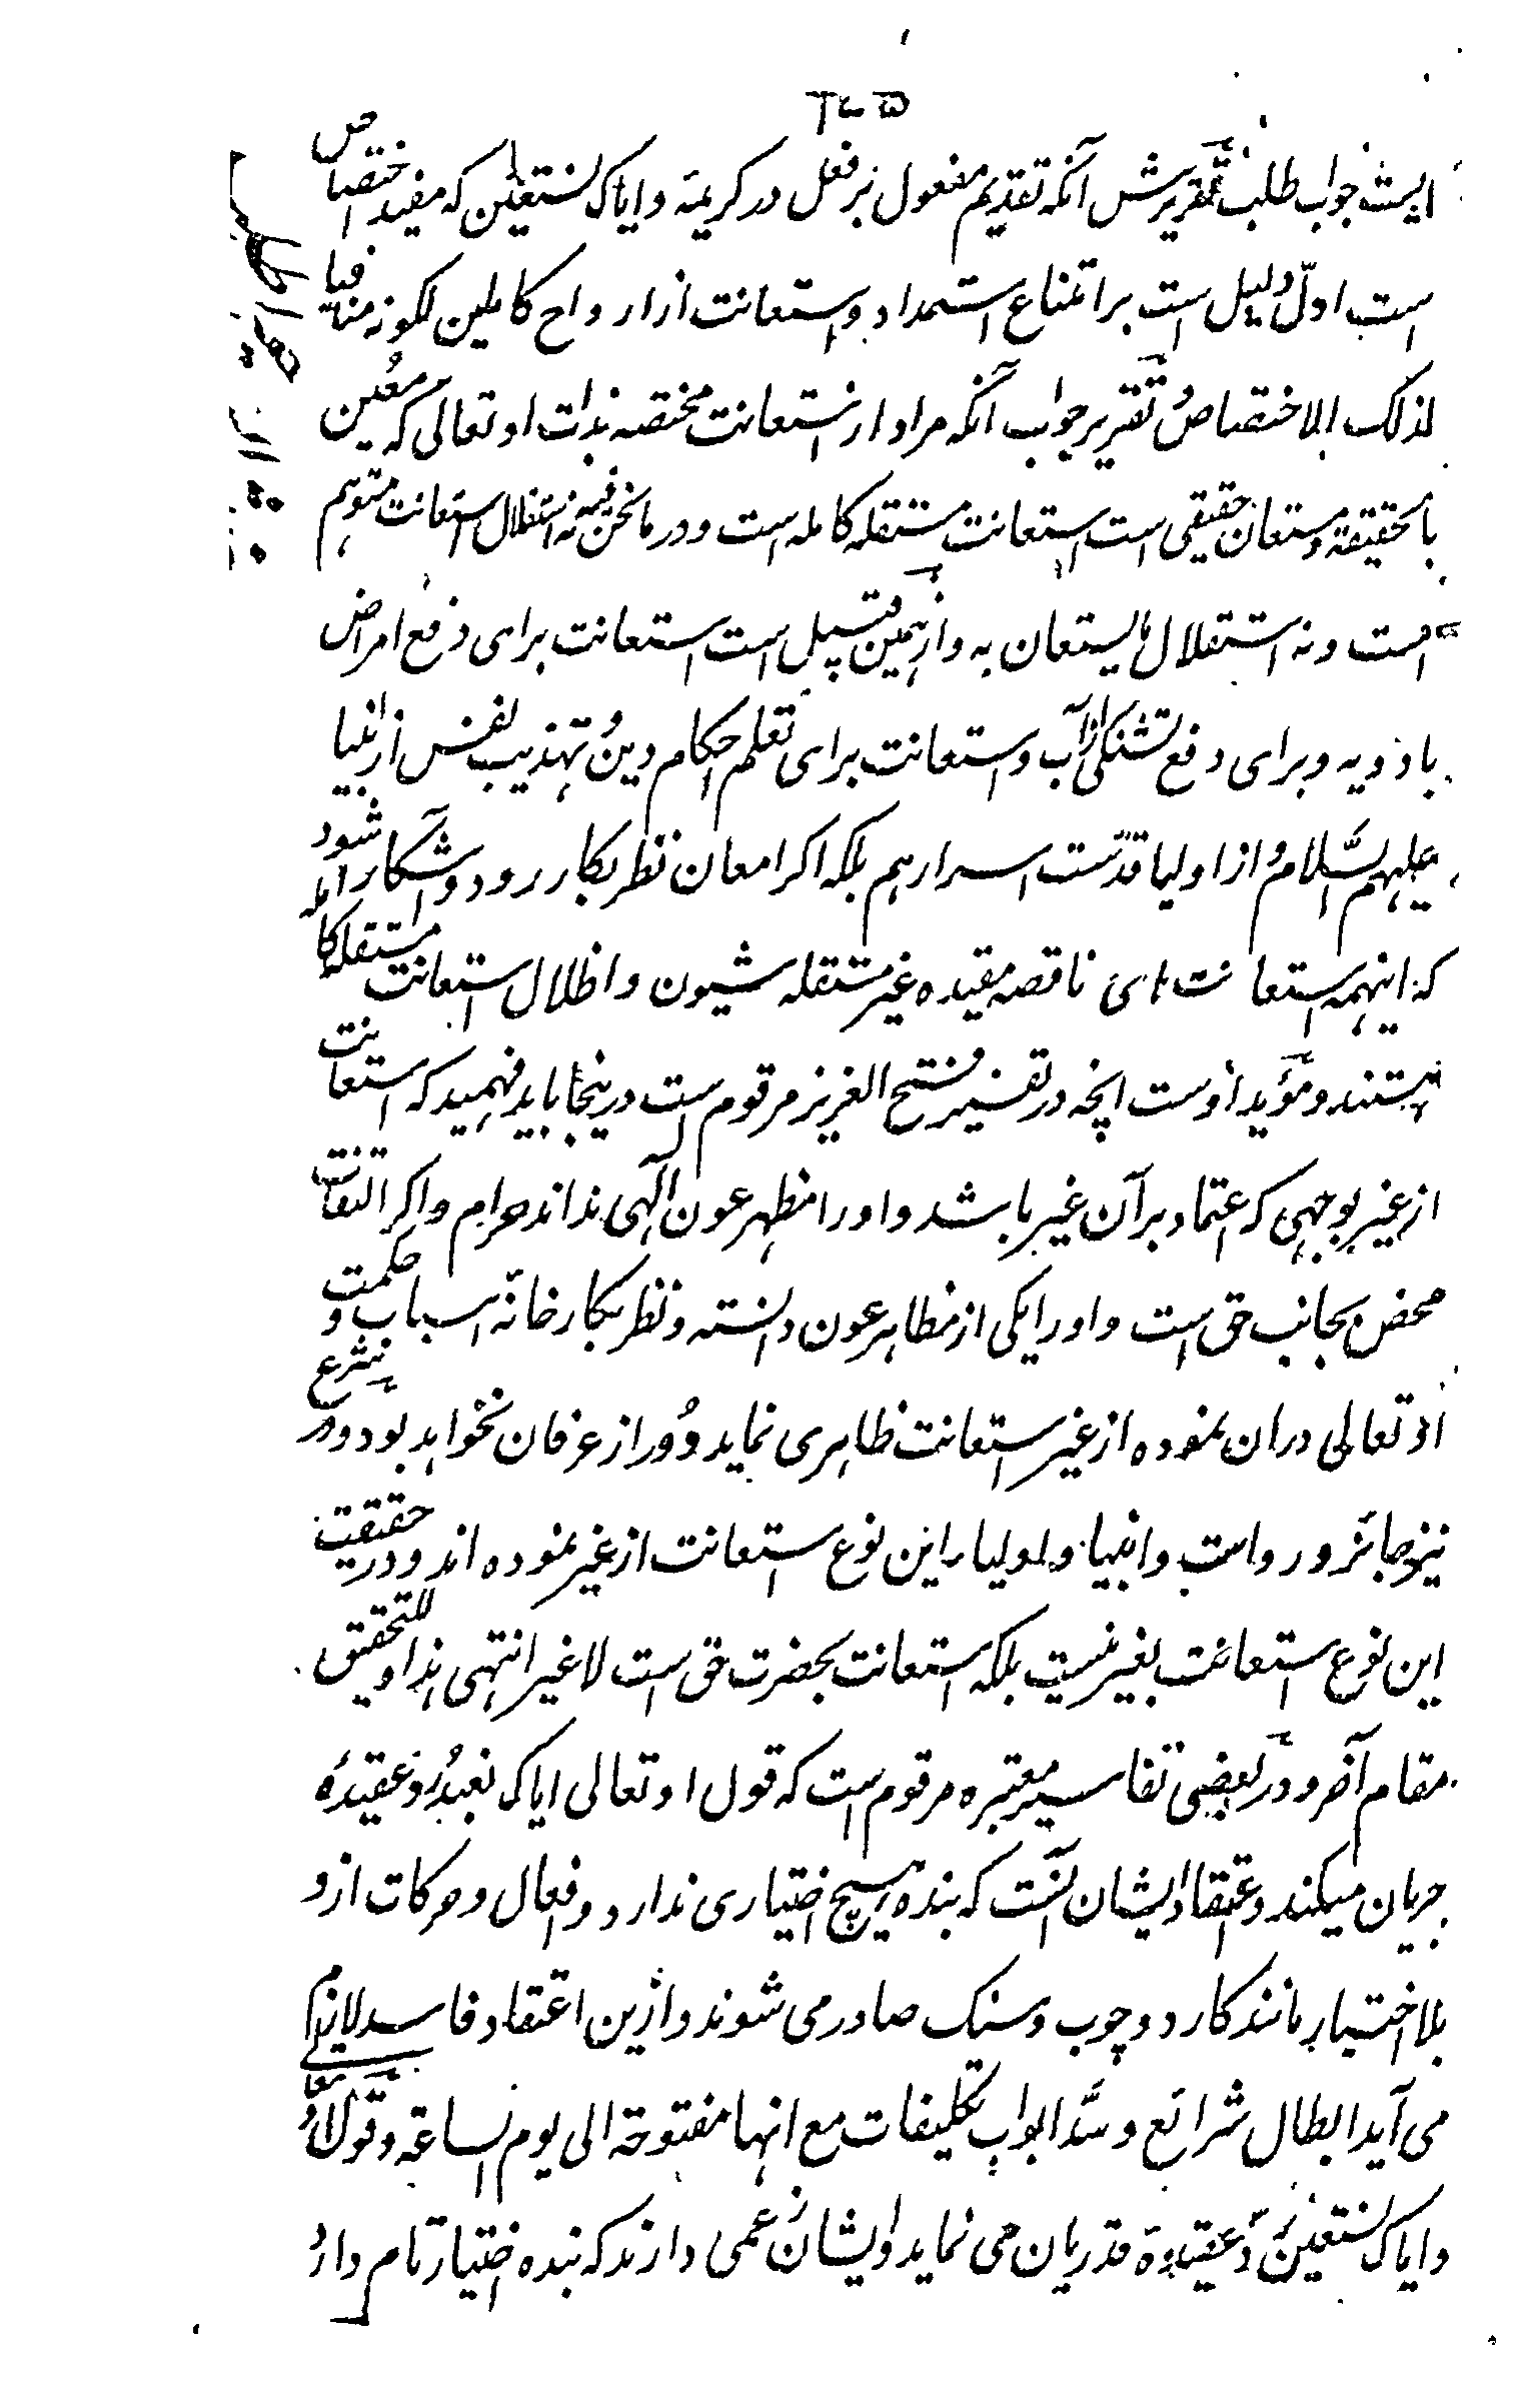 ۲۴۵
ایست جواب طلب تقریرش آنکه تقدیم مفعول بر فعل در کریمۀ و ایاک نستعین که مفید اختصاص
است اولّ دلیل است بر امتناع استمداد و استعانت از ارواح کاملین لکونه منافیا
لذلک الاختصاص تقریر جواب آنکه مراد از استعانت مختصه بذات او تعالی که معین
بالحقیقة و مستعان حقیقی است استعانت مستقله کامله است و در ما نحن فیه نه استقلال استعانت متوهم
است و نه استقلال مایستعان به و از همین قبیل است استعانت برای دفع امراض
بادویه و برای دفع تشنگی از آب و استعانت برای تعلم احکام دین و تهذیب نفس از انبیا
علیهم السّلام و از اولیا قدّست اسرارهم بلکه اگر امعان نظر بکار رود و آشکارا شود
که اینهمه استعانت های ناقصه مقیده غیر مستقله شیون و اظلال استعانت مستقله کامله
هستند و مؤید اوست انچه در تفسیر فتح العزیز مرقوم است درینجا باید فهمید که استعانت
از غیر بوجهی که اعتماد بر آن غیر باشد و اورا مظهر عون الٰهی نداند حرام و اگر التفات
محض بجانب حق است و اورا یکی از مظاهر عون دانسته و نظر بکارخانۀ اسباب و حکمت
او تعالی دران نموده از غیر استعانت ظاهری نماید دُور از عرفان نخواهد بود و در شرع
نیز جائز و رواست و انبیا و اولیا این نوع استعانت از غیر نموده اند و در حقیقت
این نوع استعانت بغیر نیست بلکه استعانت بحضرت حق است لاغیر انتهی هذا و للتحقیق
مقام آخر و در بعضی تفاسیر معتبره مرقوم است که قول او تعالی ایاک نعبد رد عقیدۀ
جبریان میکند و اعتقاد ایشان آنست که بنده هیچ اختیاری ندارد و افعال و حرکات از و
بلا اختیار مانند کارد و چوب و سنگ صادر می شوند و ازین اعتقاد فاسد لازم
می آید ابطال شرائع و سدّ ابواب تکلیفات مع انها مفتوحة الی یوم الساعة و قوله تعالی
و ایاک نستعین رد عقیدۀ قدریان می نماید و ایشان زعمی دارند که بنده اختیار تام دارد